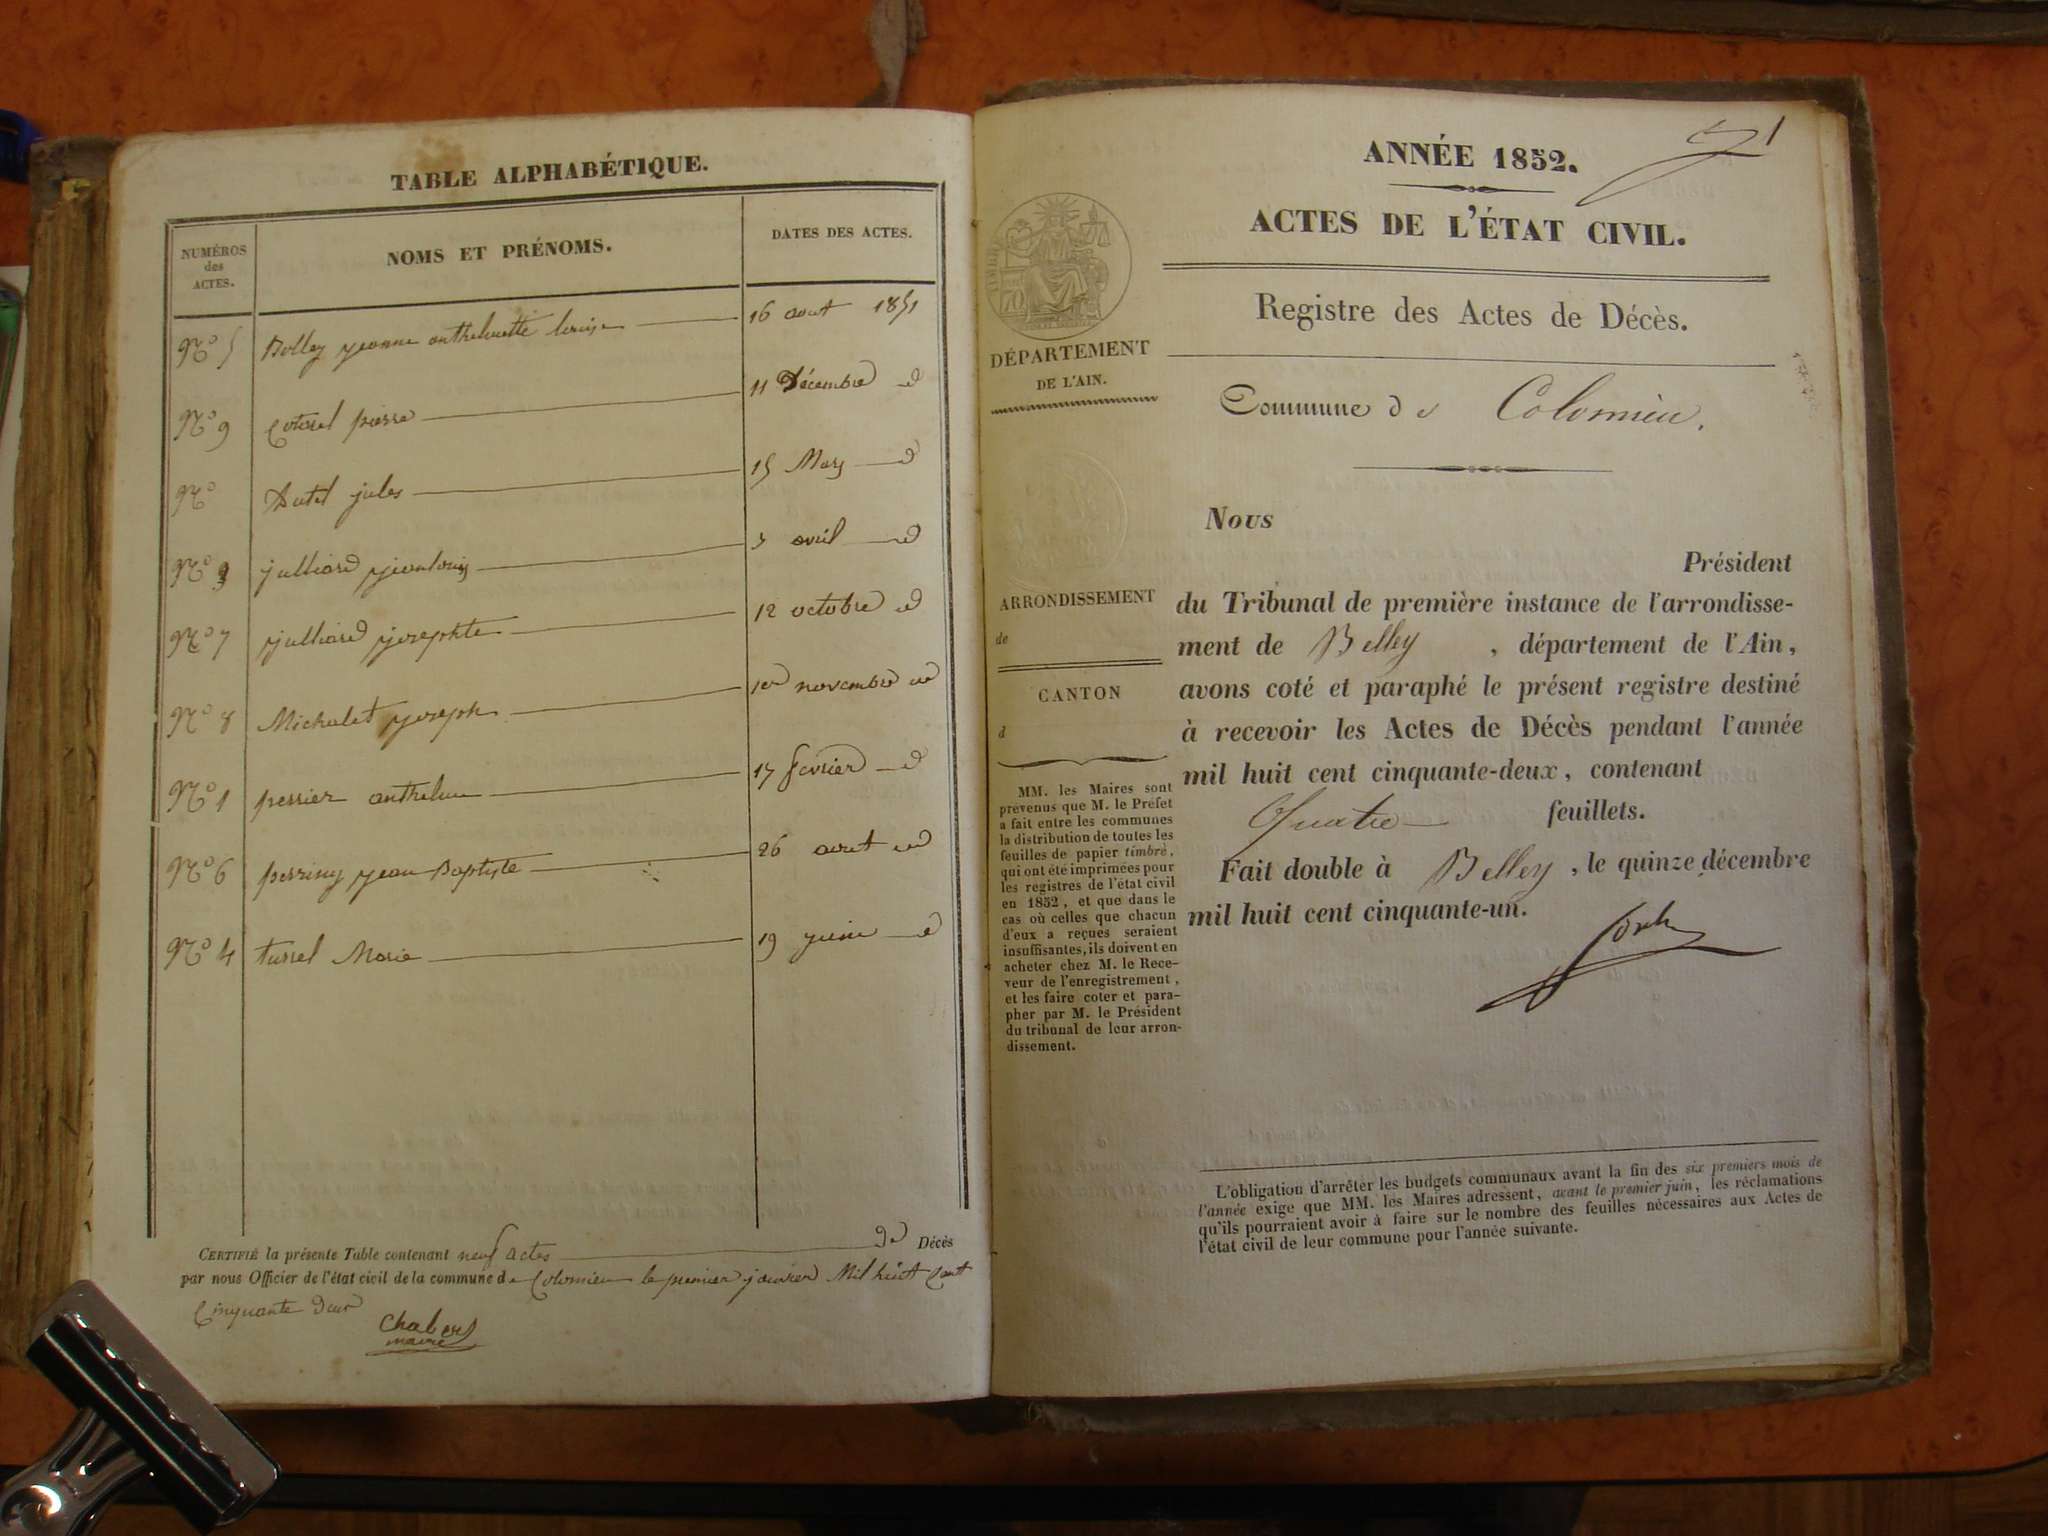 TABLE ALPHABÉTIQUE.
NUMÉROS
des
ACTES.
NOMS ET PRÉNOMS.
DATES DES ACTES.
No 5 Bolley jeanne anthelmette louise 16 aout 1851
No 9 Cotarel pierre 11 Décembre id
No Dutel jules 15 Mars id
No 3 julliard jeanlouis avril id
No 7 julliard josephte 12 octobre id
No 8 Michalet joseph 1er novembre id
No 1 perrier anthelme 17 fevrier id
No 6 jean Baptiste 26 aout id
No 4 Marie 19 juin id
CERTIFIÉ la présente Table contenant neuf actes de Décès
par nous Officier de l'état civil de la commune de Colomieu le premier janvier Mil huit Cent
Cinquante deux
Chabert
maire
1
ANNÉE 1852.
ACTES DE L'ÉTAT CIVIL.
Registre des Actes de Décès.
DÉPARTEMENT
DE L'AIN.
Commune de Colomieu.
ARRONDISSEMENT
de
CANTON
d
MM. les Maires sont
prévenus que M. le Préfet
a fait entre les communes
la distribution de toutes les
feuilles de papier timbré,
qui ont été imprimées pour
les registres de l'état civil
en 1852, et que dans le
cas où celles que chacun
d'eux a reçues seraient
insuffisantes, ils doivent en
acheter chez M. le Rece-
veur de l'enregistrement,
et les faire coter et para-
pher par M. le Président
du tribunal de leur arron-
dissement.
Nous
Président
du Tribunal de première instance de l'arrondisse-
ment de Belley , département de l'Ain,
avons coté et paraphé le présent registre destiné
à recevoir les Actes de Décès pendant l'année
mil huit cent cinquante-deux, contenant
Quatre feuillets.
Fait double à Belley , le quinze décembre
mil huit cent cinquante-un.
L'obligation d'arrêter les budgets communaux avant la fin des six premiers mois de
l'année exige que MM. les Maires adressent, avant le premier juin, les réclamations
qu'ils pourraient avoir à faire sur le nombre des feuilles nécessaires aux Actes de
l'état civil de leur commune pour l'année suivante.